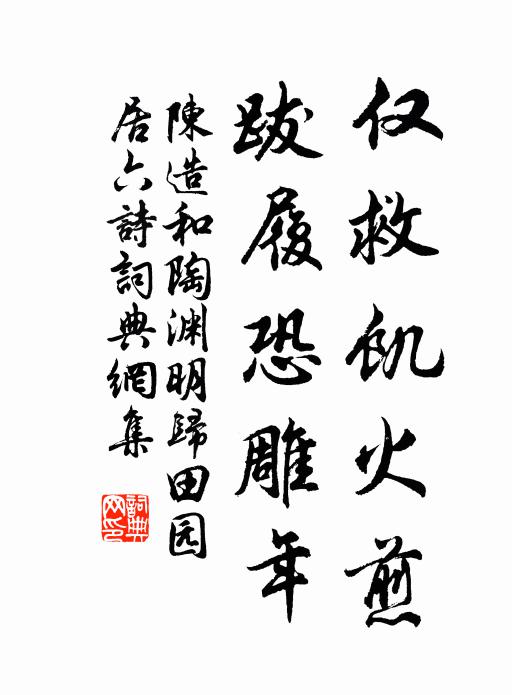 仅救飢火煎
跋履恐雕年
陳造和陶渊明歸田园
居六詩詞典網集
詞典网印